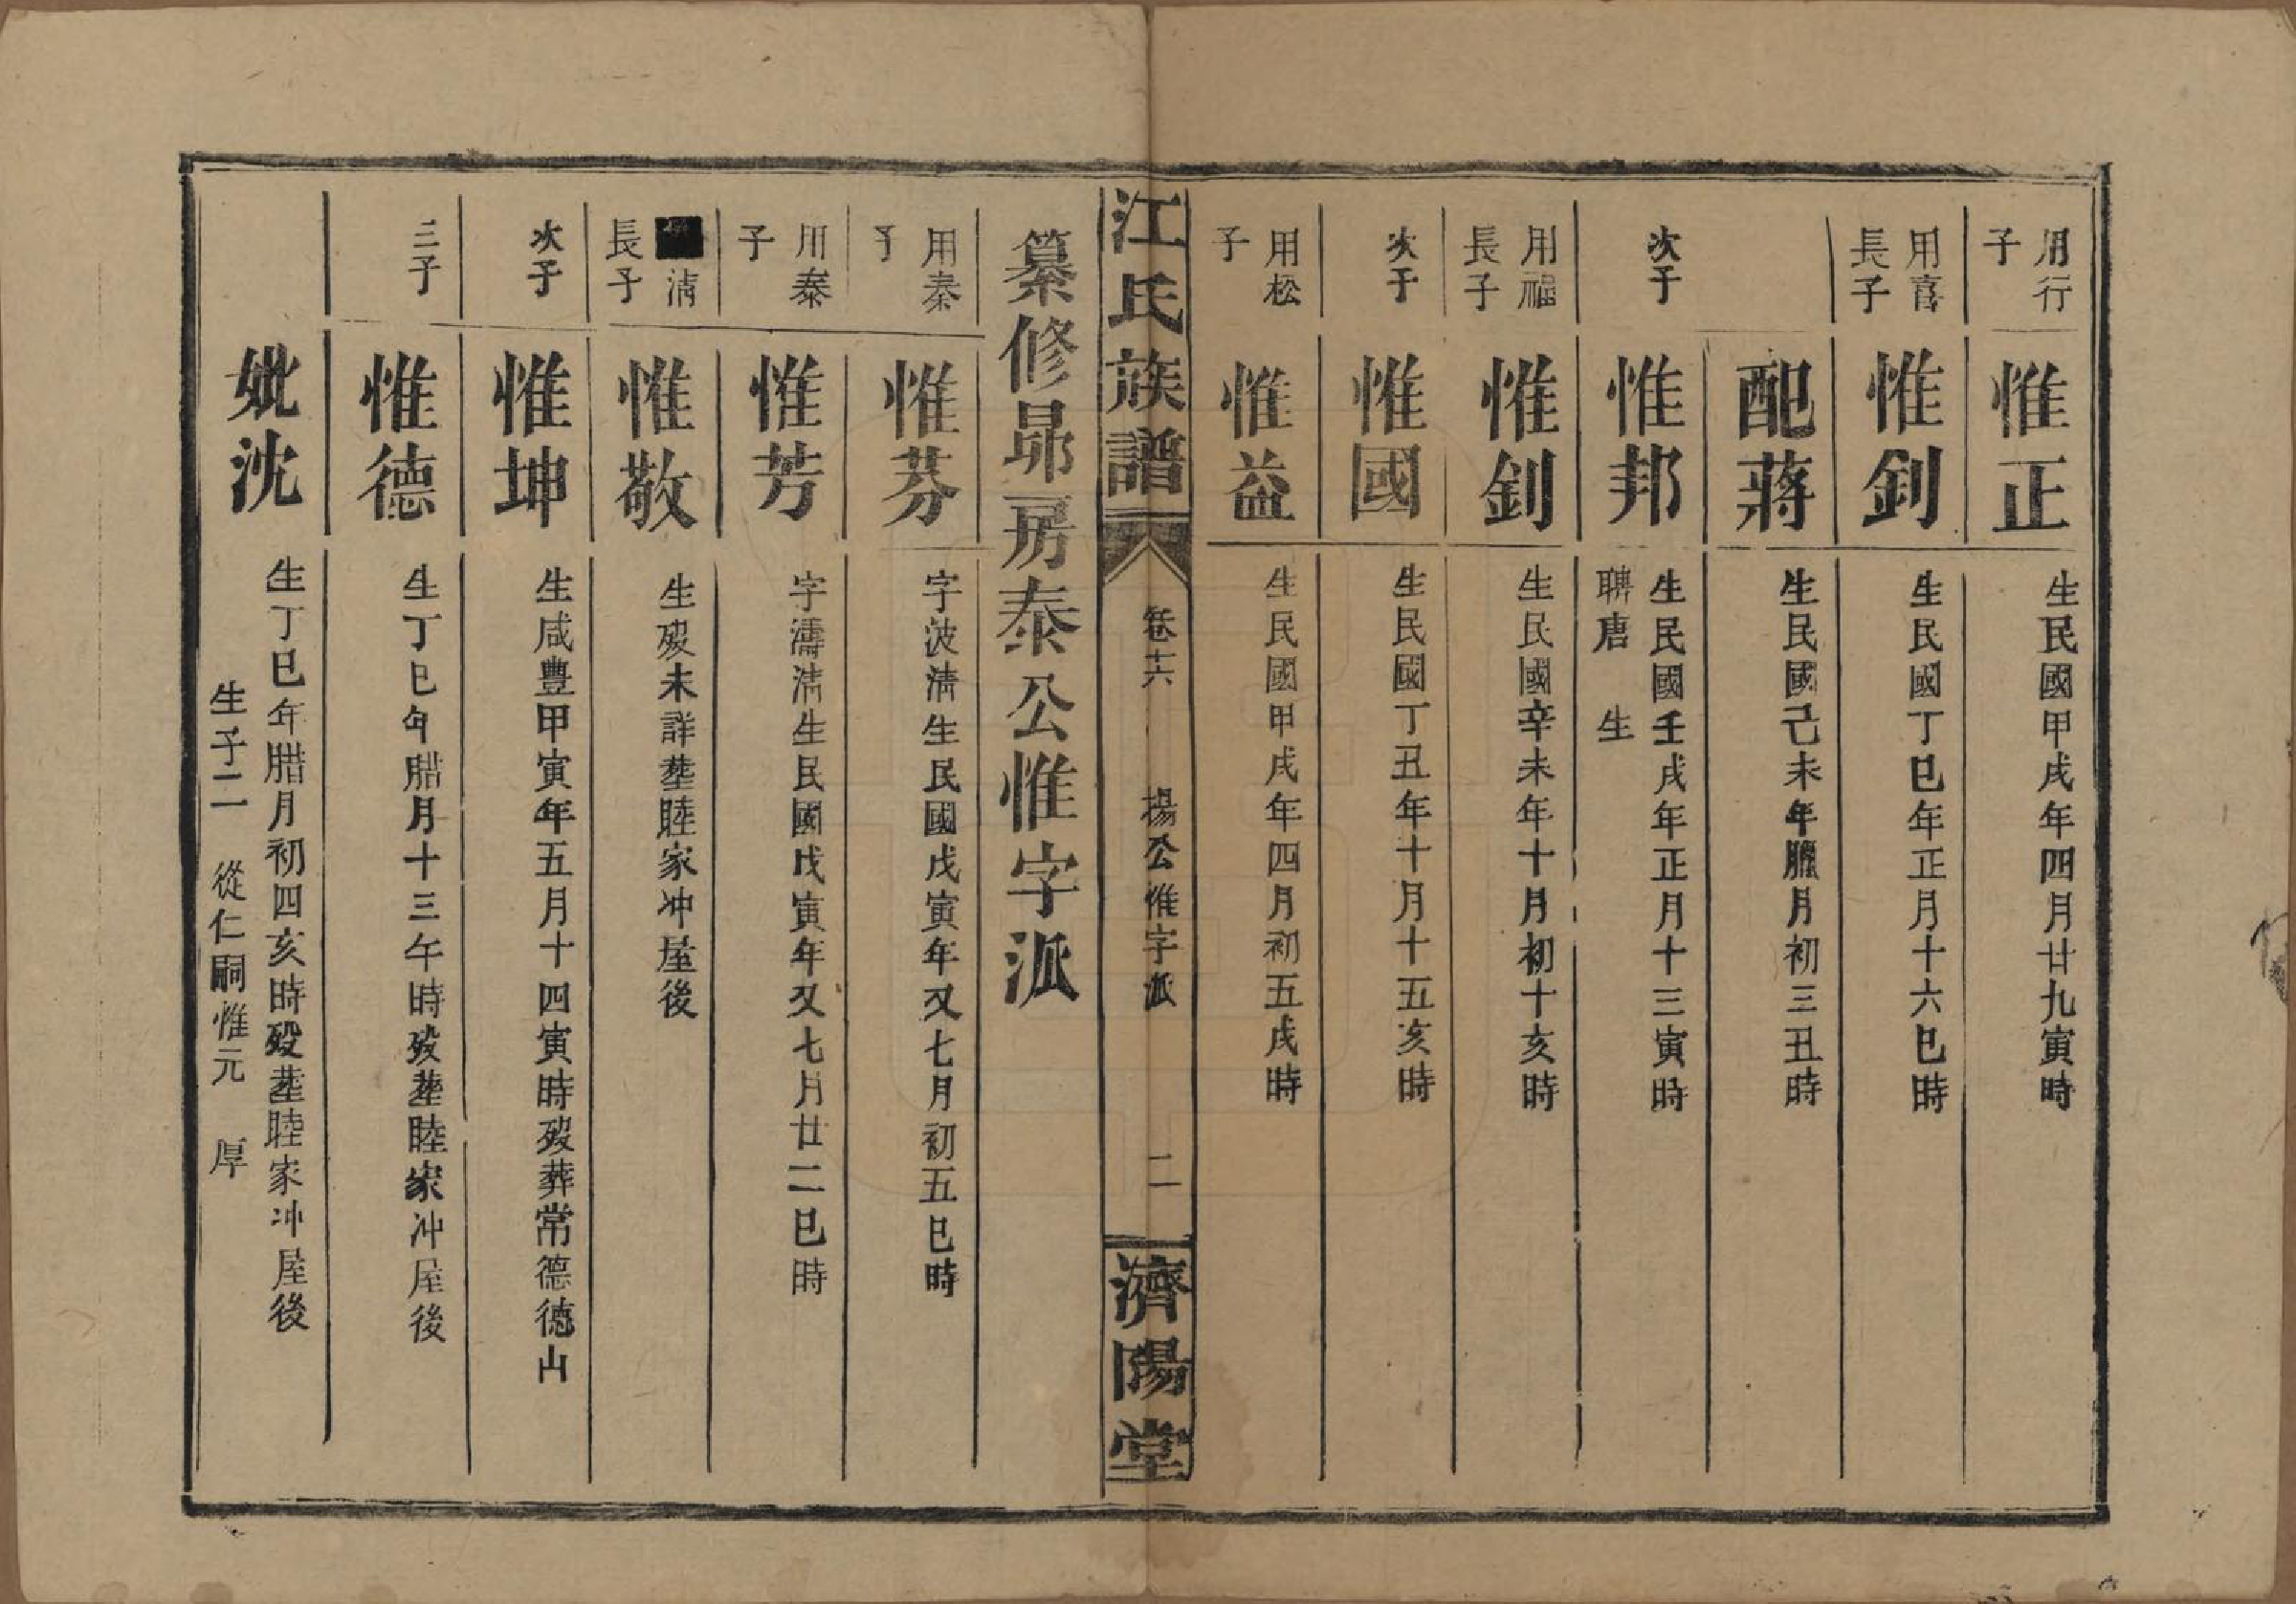 用行
子
惟正
生民國甲戌年四月廿九寅時
用喜
長子
惟釗
生民國丁巳年正月十六巳時
配蔣
生民國己未年臘月初三丑時
次子
惟邦
生民國壬戌年正月十三寅時
聘唐　生
用福
長子
惟釗
生民國辛未年十月初十亥時
次子
惟國
生民國丁丑年十月十五亥時
用松
子
惟益
生民國甲戌年四月初五戌時
江氏族譜
卷十六　楊公惟字派　二
濟陽堂
纂修昴房泰公惟字派
用秦
子
惟芬
字波清生民國戊寅年又七月初五巳時
用泰
子
惟芳
字濤清生民國戊寅年又七月廿二巳時
清
長子
惟敬
生歿未詳塟睦家冲屋後
次子
惟坤
生咸豐甲寅年五月十四寅時歿葬常德德山
三子
惟德
生丁巳年腊月十三午時歿塟睦家冲屋後
妣沈
生丁巳年腊月初四亥時歿塟睦家冲屋後
生子二　從仁嗣惟元　厚